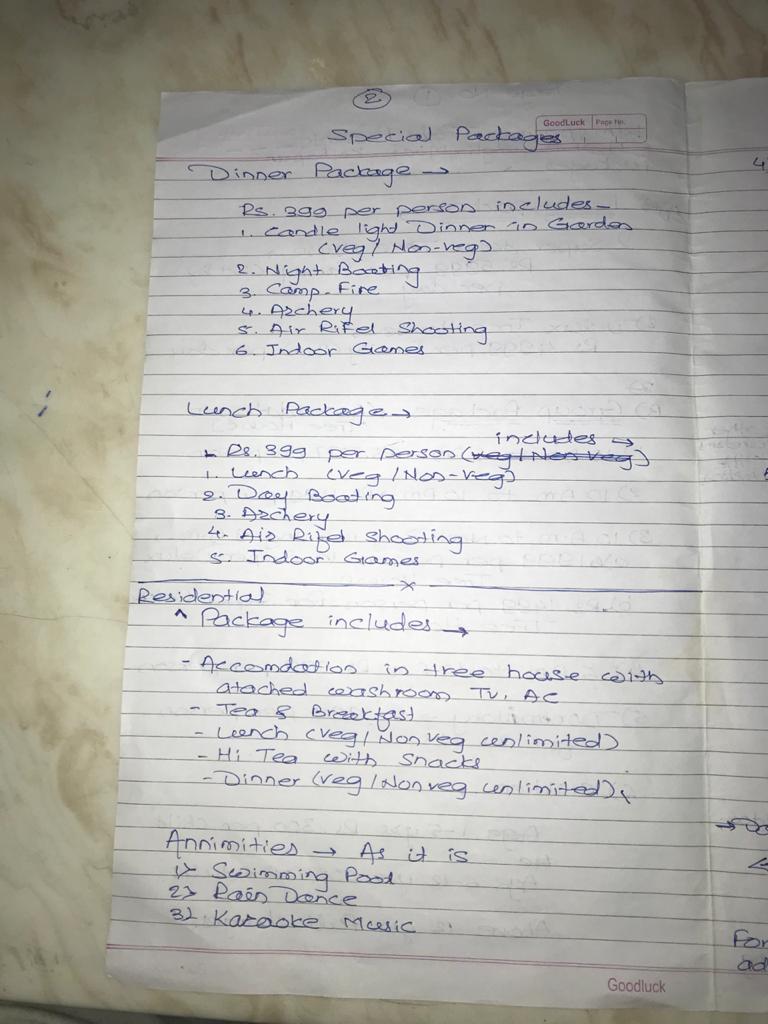 2
GoodLuck Page No.
Special Packages
Dinner Package →
Rs. 399 per person includes -
1. Candle light Dinner in Garden
(veg / Non-veg)
2. Night Boating
3. Camp-Fire
4. Archery
5. Air Rifel Shooting
6. Indoor Games
Lunch Package →
includes →
Rs. 399 per person (veg / Non veg)
1. Lunch (veg / Non-veg)
2. Day Boating
3. Archery
4. Air Rifel Shooting
5. Indoor Games
x
Residential
^ Package includes →
- Accomdation in tree house with
atached washroom TV, AC
- Tea & Breakfast
- Lunch (veg / Non veg unlimited)
- Hi Tea with Snacks
- Dinner (veg / Non veg unlimited)
Annimities → As it is
1> Swimming Pool
2> Rain Dance
3> Karaoke Music
Goodluck
4
For
ad